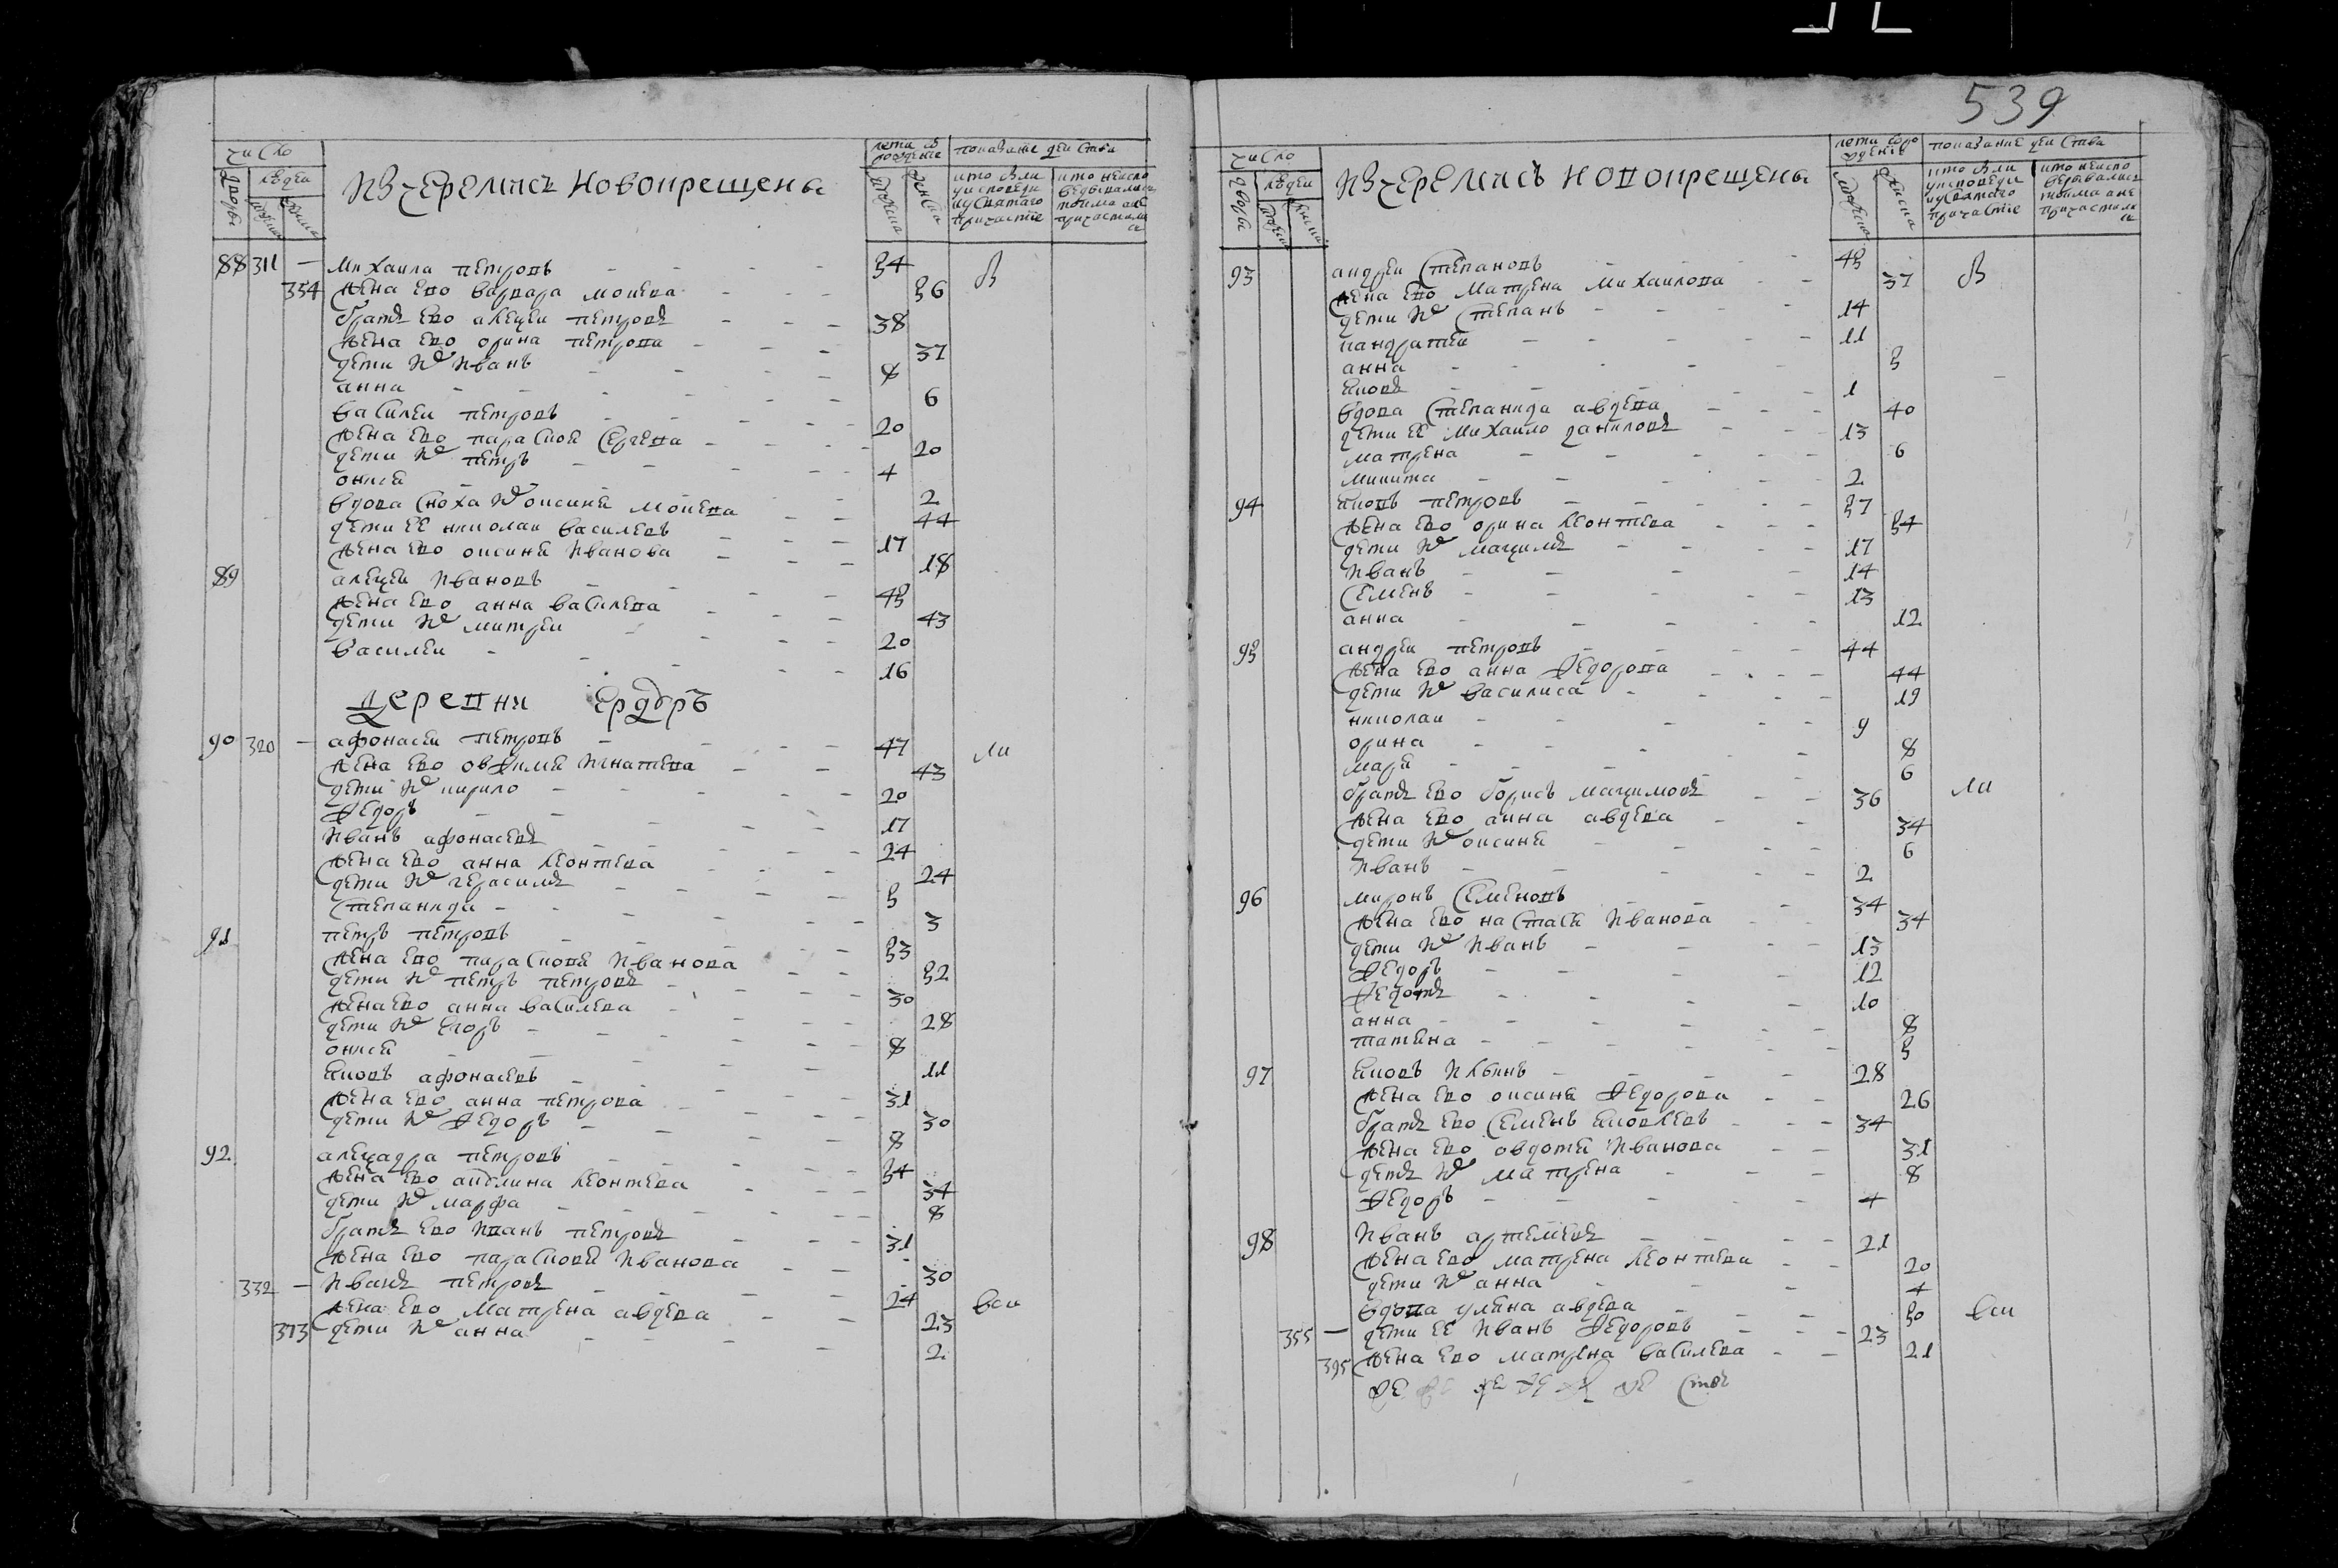 число
дворы
людеи
мужеска
женска
Изчеремисъ новокрещены
лета от рождение
мужеска
женска
показание деиства
кто были у исповеди и у святаго причастие
кто неисповедывались токмо а не причастились
88 311 — Михаила петровъ 54
354 жена ево варвара мокеева 56
братъ ево алеѯеи петровъ 38
жена ево орина петрова 37
дети их иванъ 8
анна 6
василеи петровъ 20
жена ево параскоѳя сергеева 20
дети их петръ 4
онися 2
вдова сноха их оксинья мокеева 44
дети ее николаи василевъ 17
жена ево оксинья иванова 18
89 алеѯеи ивановъ 45
жена ево анна василева 43
дети их митреи 20
василеи 16
Деревни Ердоръ
90 320 — афонасеи петровъ 47
жена ево овѳимья игнатева 43
дети их кирило 20
Ѳедоръ 17
иванъ афонасевъ 24
жена ево анна леонтева 24
дети их герасимъ 5
степанида 3
91 петръ петровъ 53
жена ево параскоѳья иванова 52
дети их петръ петровъ 30
жена ево анна василева 28
дети их егоръ 8
онися 11
яковъ афонасевъ 31
жена ево анна петрова 30
дети их Ѳедоръ 8
92 алеѯадра петровъ 34
жена ево акулина леонтева 34
дети их марфа 8
братъ ево иванъ петровъ 31
жена ево параскоѳья иванова 30
332 — иванъ петровъ 24
жена ево матрена авдева 23
373 дети их анна 2
539
число
дворы
людеи
мужеска
женска
Изчеремисъ новокрещены
лета от рождения
мужеска
женска
показание деиства
кто были у исповеди и у святаго причастие
кто неисповедывались токмо а не причастились
93 андреи степановъ 45
жена ево матрена михаилова 37
дети их степанъ 14
кандратеи 11
анна 5
яковъ 1
вдова степанида авдева 40
дети ее михаило даниловъ 13
матрена 6
микита 2
94 яковъ петровъ 57
жена ево орина леонтева 54
дети их маѯимъ 17
иванъ 14
семенъ 13
анна 12
95 андреи петровъ 44
жена ево анна Ѳедорова 44
дети их василиса 19
николаи 9
орина 8
марья 6
братъ ево борисъ маѯимовъ 36 ли
жена ево анна авдева 34
дети их оксинья 6
иванъ 2
96 миронъ семеновъ 34
жена ево настася иванова 34
дети их иванъ 13
Ѳедоръ 12
Ѳедотъ 10
анна 8
татяна 5
97 яковъ илинъ 28
жена ево оксинья Ѳедорова 26
братъ ево семенъ яковлевъ 34
жена ево овдотья иванова 31
детъ их матрена 8
Ѳедоръ 4
98 иванъ артемевъ 21
жена ево матрена леонтева 20
дети их анна 4
вдова уляна авдева 50
355 — дети ее иванъ Ѳедоровъ 23
395 жена ево матрена василева 21